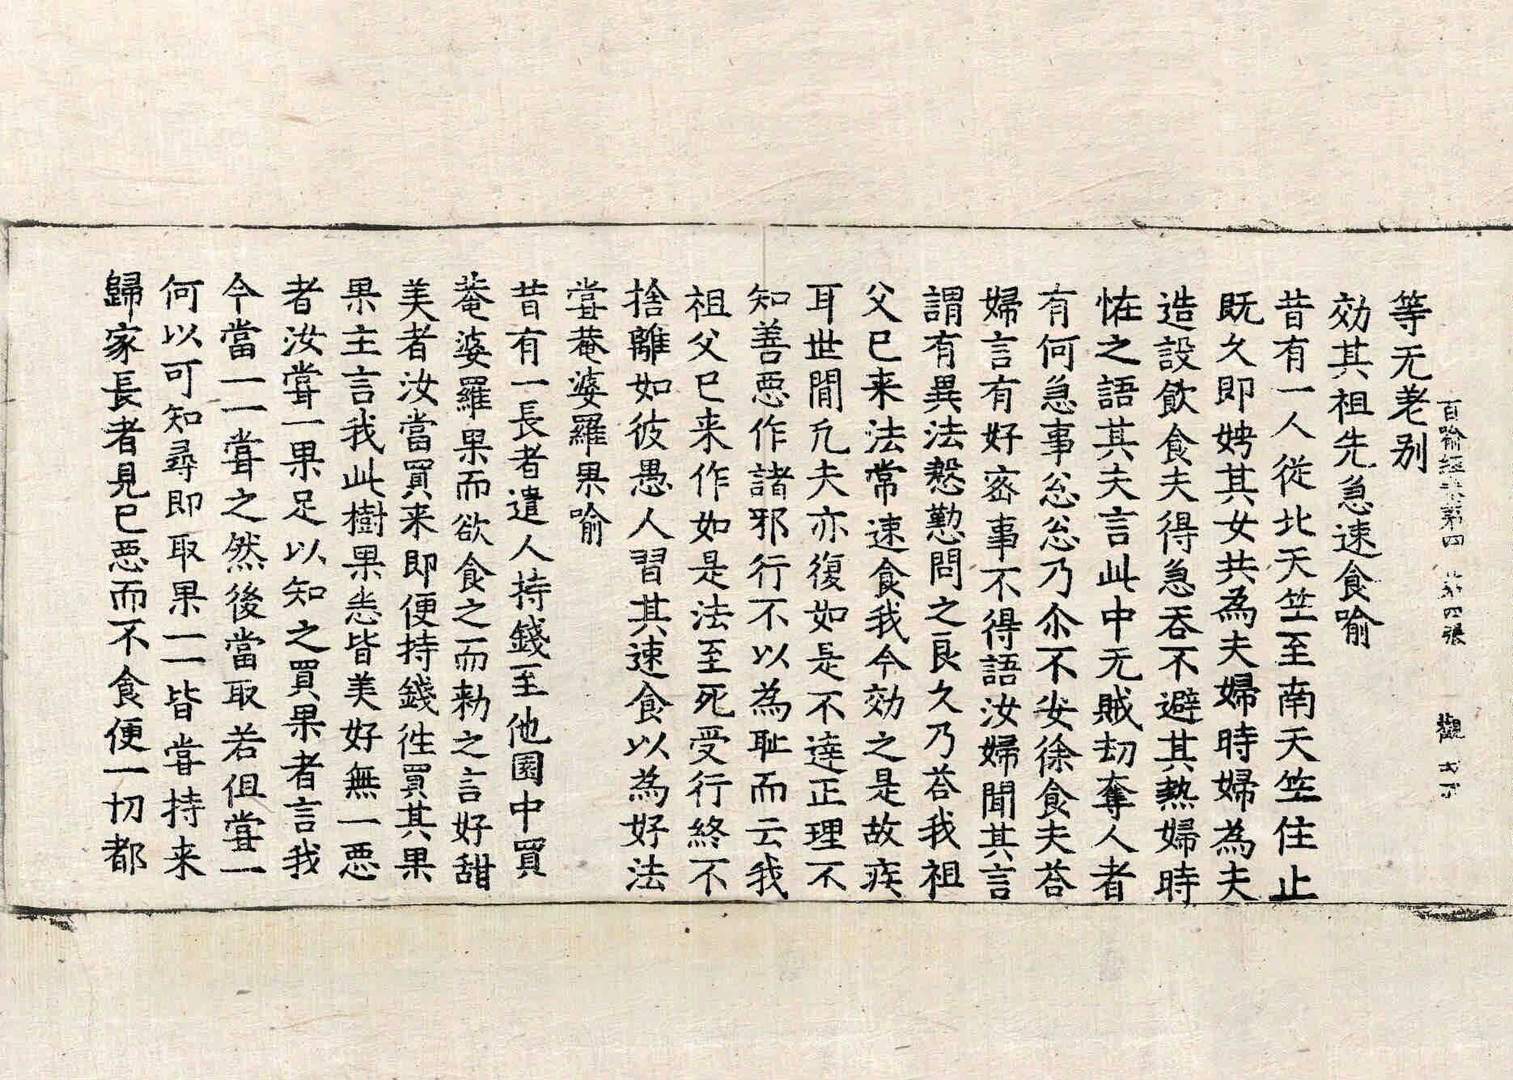 百喻經卷第四 第四張 觀
等无老别
効其祖先急速食喻
昔有一人從北天竺至南天竺住止
既久即娉其女共為夫婦時婦為夫
造設飲食夫得急吞不避其熱婦時
恠之語其夫言此中无賊劫奪人者
有何急事忩忩乃尒不安徐食夫荅
婦言有好密事不得語汝婦聞其言
謂有異法慇懃問之良久乃荅我祖
父已来法常速食我今効之是故疾
耳世間凢夫亦復如是不達正理不
知善悪作諸邪行不以為耻而云我
祖父已来作如是法至死受行終不
捨離如彼愚人習其速食以為好法
甞菴婆羅果喻
昔有一長者遣人持錢至他園中買
菴婆羅果而欲食之而勑之言好甜
美者汝當買来即便持錢徃買其果
果主言我此樹果悉皆美好無一悪
者汝甞一果足以知之買果者言我
今當一一甞之然後當取若但甞一
何以可知尋即取果一一皆甞持来
歸家長者見已悪而不食便一切都